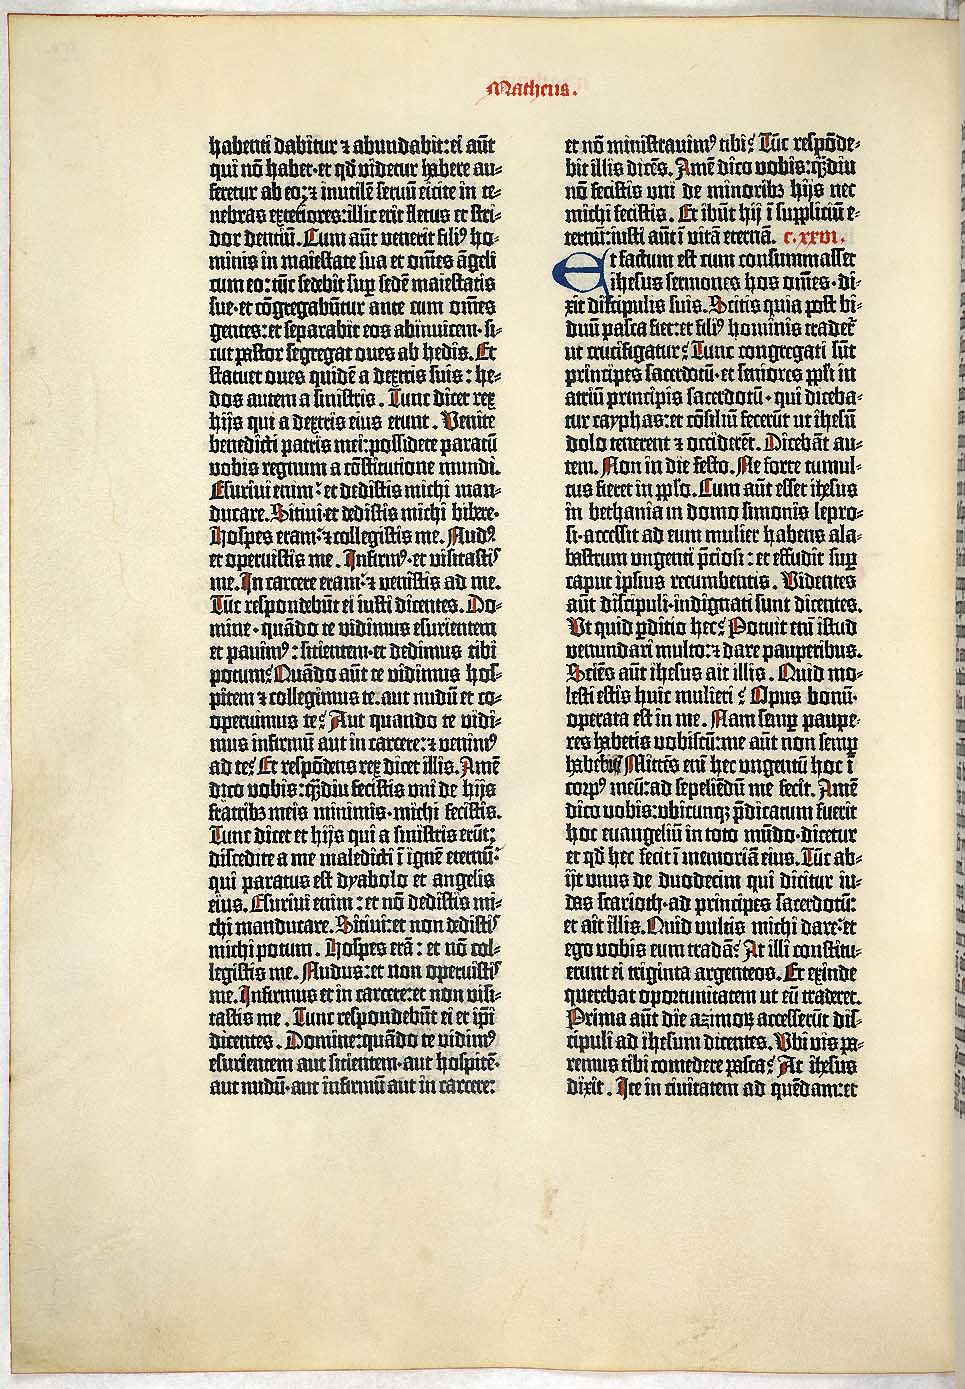 Matheus.
habenti dabitur ⁊ abundabit: ei aūt
qui nō habet · et qď videtur habere au-
feretur ab eo: ⁊ inutilē servum eicite in te-
nebras exteriores: illic erit fletus et stri-
dor dentiū. Cum aūt venerit filiꝰ ho-
minis in maiestate sua et om̄es āgeli
cum eo: tūc sedebit suꝑ sedē maiestatis
sue · et cōgregabūtur ante eum om̄es
gentes: et separabit eos abinvicem · si-
cut pastor segregat oves ab hedis. Et
statuet oves quidē a dextris suis: he-
dos autem a sinistris. Tunc dicet rex
hijs qui a dextris eius erunt. Venite
benedicti patris mei: possidete paratū
vobis regnum a cōstitutione mundi.
Esurivi enim: et dedistis michi man-
ducare. Sitivi · et dedistis michi bibere ·
Hospes eram: ⁊ collegistis me. Nudꝰ
et operuistis me. Infirmꝰ · et visitastis
me. In carcere eram: ⁊ venistis ad me.
Tūc respondebūt ei iusti dicentes. Do-
mine · quādo te vidimus esurientem
et pavimꝰ: sitientem · et dedimus tibi
potum? Quādo aūt te vidimus hos-
pitem ⁊ collegimus te · aut nudū et co-
operuimus te? Aut quando te vidi-
mus infirmū aut in carcere: ⁊ venimꝰ
ad te? Et respōdens rex dicet illis. Amē
dico vobis: qᵃ̄diu fecistis uni de hijs
fratribꝫ meis minimis · michi fecistis.
Tunc dicet et hijs qui a sinistris erūt:
discedite a me maledicti ī ignē eternū:
qui paratus est dyabolo et angelis
eius. Esurivi enim: et nō dedistis mi-
chi manducare. Sitivi: et non dedistis
michi potum. Hospes erā: et nō col-
legistis me. Nudus: et non operuistis
me. Infirmus et in carcere: et non visi-
tastis me. Tunc respondebūt ei et ip̄i
dicentes. Domine: quādo te vidimꝰ
esurientem aut sitientem · aut hospitē ·
aut nudū · aut infirmū aut in carcere:
et nō ministravimꝰ tibi? Tūc respōde-
bit illis dicēs. Amē dico vobis: qᵃ̄diu
nō fecistis uni de minoribꝫ hijs nec
michi fecistis. Et ibūt hij ī suppliciū e-
ternū: iusti aūt ī vitā eternā. c. xxvi.
Et factum est cum consummasset
ihesus sermones hos om̄es · di-
xit discipulis suis. Scitis quia post bi-
duū pasca fiet: et filiꝰ hominis tradet᷑
ut crucifigatur? Tunc congregati sūt
principes sacerdotū · et seniores pp̄li in
atriū principis sacerdotū · qui diceba-
tur cayphas: et cōsiliū fecerūt ut ihesū
dolo tenerent ⁊ occiderēt. Dicebāt au-
tem. Non in die festo. Ne forte tumul-
tus fieret in pp̄lo. Cum aūt esset ihesus
in bethania in domo simonis lepro-
si · accessit ad eum mulier habens ala-
bastrum ungenti p̄ciosi: et effudit suꝑ
caput ipsius recumbentis. Videntes
aūt discipuli · indignati sunt dicentes.
Ut quid ꝑditio hec? Potuit enī istud
venundari multo: ⁊ dare pauperibus.
Sciēs aūt ihesus ait illis. Quid mo-
lesti estis huic mulieri? Opus bonū ·
operata est in me. Nam semꝑ paupe-
res habetis vobiscū: me aūt non semꝑ
habebitis Mittēs enī hec ungentū hoc ī
corpꝰ meū: ad sepeliēdū me fecit. Amē
dico vobis: ubicunqꝫ p̄dicatum fuerit
hoc euangeliū in toto mūdo · dicetur
et qď hec fecit ī memoriā eius. Tūc ab-
ijt unus de duodecim qui dicitur iu-
das scarioth · ad principes sacerdotū:
et ait illis. Quid vultis michi dare: et
ego vobis eum tradā? At illi constitu-
erunt ei triginta argenteos. Et exinde
querebat oportunitatem ut eū traderet.
Prima aūt die azimoꝝ accesserūt dis-
cipuli ad ihesum dicentes. Ubi vis pa-
remus tibi comedere pasca? At ihesus
dixit. Ite in civitatem ad quēdam: et